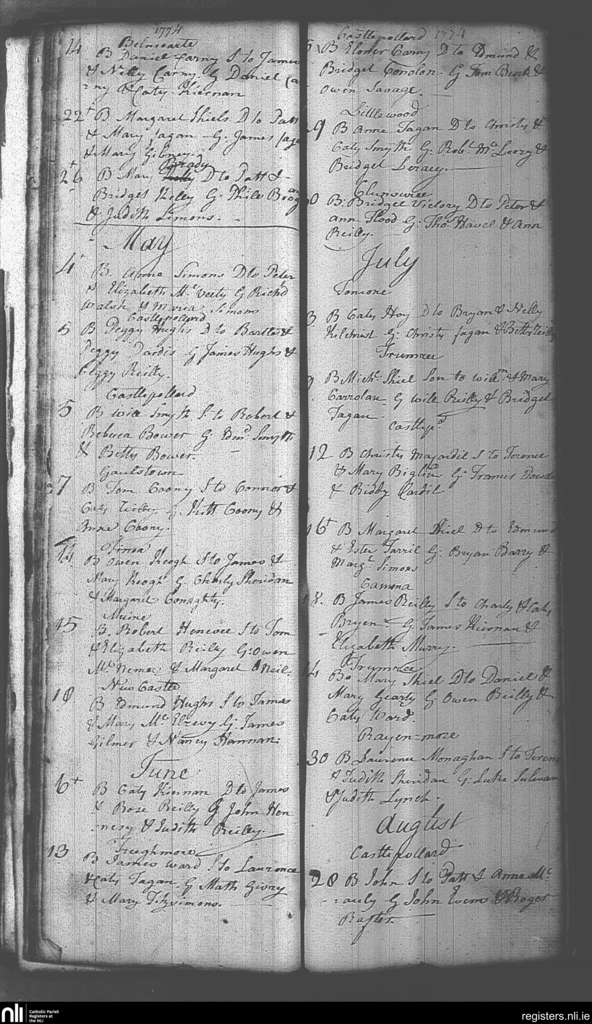 1774
Belnacarte
14 B Daniel Carny S to James
& Nelly Carny G Daniel Ca
rny & Caty Kiernan
22 B Margaret Shiels D to Patt
& Mary Fagan G James
& Mary Gilmor
26 B Mary Brady D to Patt &
Bridget Reilly G Philip
& Judith Simons.
May
4 B Anne Simons D to Peter
& Elizabeth Mc Veety G Richd
Walsh & Maria Simons
Castlepollard
5 B Peggy Hughs D to Bartle &
Peggy Dardis G James Hughs &
Peggy Reilly.
Castlepollard
5 B Will Smyth S to Robert &
Rebeca Bower G Edmd Smyth
& Betty Bower
Gaulstown
7 B Tom Coony S to Connor &
Caty G Kitt Coony &
Anne Coony.
14 B Owen Keogh S to James &
Mary Keogh G Charly Sheridan
& Margaret Conaghty.
15 B. Robert Hencock S to Tom
& Elizabeth Reilly G Owen
& Margaret ONeil
New Castle
18 B Edmund Hughs S to James
& Mary Mc Elrevy G James
Gilmer & Nancy Hannan.
June
6 B Caty Kiernan D to James
& Rose Reilly G John Hen
nesy & Judith Reilly.
13 B James Ward S to Laurence
& Caty Fagan G Math Givny
& Mary Fitzsimons.
Castlepollard 1774
B Elonor Carny D to Edmund &
Bridget Conolon G Tom Burk &
Owen Savage.
Littlewood
9 B Anne Fagan D to Christy &
Caty Smyth G Robt
Bridget
B. Bridget Victory D to Peter &
Ann Flood G Thos & Ann
Reilly.
July
B Caty Hoy D to Bryan & Nelly
G Christy Fagan & Betty Reilly
Frumree
B Michl Shiel Son to Willm & Mary
Carrolan G Will Reilly & Bridget
Fagan.
Castlepd
12 B Christy S to Terence
& Mary G Frances
& Biddy
16 B Margaret Shiel D to Edmund
& Ester Farril G. Bryan Barry &
Margt Simons
Camma
18. B James Reilly S to Charly & Caty
Bryen G James Kiernan &
Elizabeth Murry.
Frumree
B Mary Shiel D to Daniel &
Mary Gearty G Owen Reilly &
Caty Ward.
Rayen-more
30 B Laurence Monaghan S to Terence
& Judith Sheridan G Luke Sulivan
& Judith Lynch.
August
Castlepollard
28 B John S to Patt & Anne Mc
G John Evens & Roger
nli Catholic Parish
Registers at
the NLI
registers.nli.ie